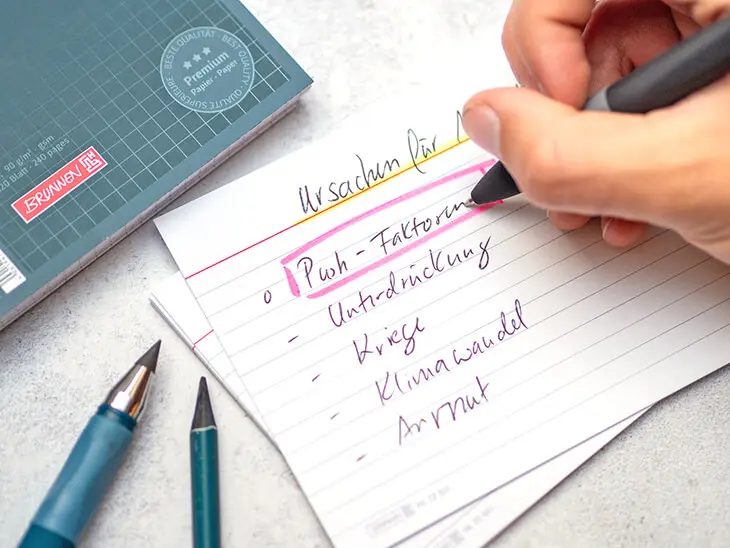 BESTE QUALITÄT · BEST QUALITY · QUALITÉ SUPÉRIEURE
Premium
Papier · Paper
90 g/m² · gsm
120 Blatt · 240 pages
BRUNNEN
Ursachen für
Push-Faktoren
- Unterdrückung
- Kriege
- Klimawandel
- Armut